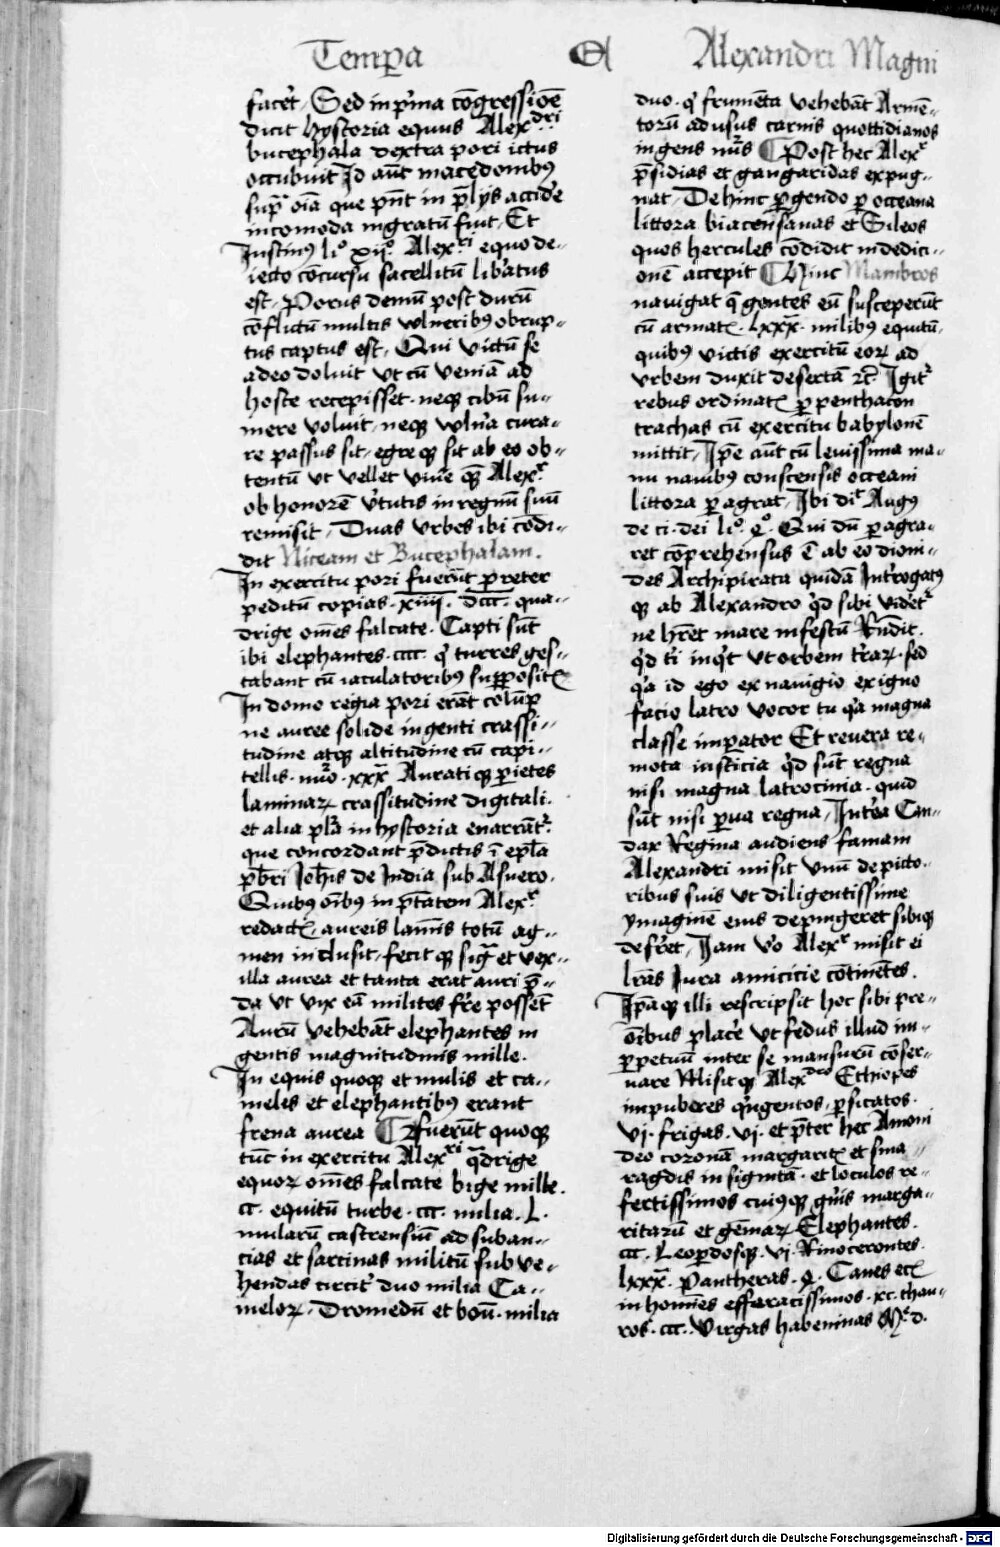 Temp̲a Alexandri Magni
facer̄t, Sed in p̄ma cōgressiōe
dicit hystoria equus Alexdri
bucephala dextra pori ictus
occubuit Id aūt macedonibꝰ
sup̄ oīa que pn̄t in p̄lijs accid'e
incomoda ingratū fuit, Et
Justinꝰ li° xij° Alexri equo de-
iecto cōcursu satellitū lib'atus
est, Porus demū post durū
cōflictū multis vlneribꝰ obrup-
tus captus est, Qui victū se
adeo doluit vt cū veniā ab
hoste recepisset neqꝫ cibū su-
mere voluit, neqꝫ vln'a cura-
re passus sit, egreqꝫ sit ab eo ob-
tentū vt vellet viu'e quē Alexr
ob honorē v'tutis in regnū suū
remisit, Duas vrbes ibi cōdi-
dit Niceam et Bucephalam.
In exercitu pori fuer̄ut p̲reter
peditū copias xiiij. dccc. qua-
drige om̄es falcate. Capti sūt
ibi elephantes cccc. q' turres ges-
tabant cū iaculatoribꝰ sup̲posit̄
In domo regia pori erāt colūp
ne auree solide ingenti crassi-
tudine atqꝫ altitudine cū capi-
tellis nūo xxx Aurati qꝫ p̲ietes
laminaꝝ crassitudine digitali.
et alia pl'a in hystoria enarrāt'
que concordant p̄dictis ī epl̄a
p̄bri Joh̄is de India sub Asuero.
Quibꝰ oībꝰ in p̄tatem Alexr
redact̄, aureis lamīs totū ag-
men inclusit, fecit qꝫ sig'a et vex-
illa aurea et tanta erat auri p̄-
da vt vix eā milites fr̄e possēt
Aurū vehebāt elephantes in
gentis magnitudinis mille.
In equis quoqꝫ et mulis et ca-
melis et elephantibꝰ erant
frena aurea ¶ fuer̄ut quoqꝫ
tūc in exercitu Alexri q̄drige
equoꝝ om̄es falcate bige mille.
cc. equitū turbe ccc. milia. L.
mularū castrensiū ad suban-
cias et sarcinas militū subve-
hendas circit' duo milia Ca-
meloꝝ. Dromedū et boū. milia
duo. q' frumēta vehebāt Armē-
torū ad usus carnis quottidianos
ingens nūs ¶ Post hec Alexr
p̄sidias et gangaridas expug-
nat, Dehinc p̲gendo p̲ occeana
littora biacensanas et Sileos
quos hercules cōdidit in dedici-
onē accepit ¶ Hinc Mambros
nauigat q̄ gentes eū susceper̄ut
cū armat̄. lxxx milibꝰ equitū,
quibꝰ victis exercitū eoꝝ ad
vrbem duxit desertā ꝛc̄ Igit'
rebus ordinat̄ p̲ penthacon
trachas cū exercitu babylonē
mittit, Ip̄e aūt cū leuissima ma-
nu nauibꝰ conscensis occeani
littora p̲agrat, Ibi dit Augꝰ
de ci. dei li° 4° Qui dū p̲agra-
ret cōprehensus ē ab eo dioni-
des Archipirata quidā Int'rogatꝰ
qꝫ ab Alexandro q'd sibi videt'
ne hr̄et mare infestū Rn̄dit.
q'd ti inq't vt orbem t'raꝝ. sed
q'a id ego ex nauigio exiguo
facio latro vocor tu q'a magna
classe imp̲ator Et reuera re-
mota iusticia q'd sūt regna
nisi magna latrocinia. quid
sūt nisi p̲ua regna, Int'ea Can-
dax Regina audiens famam
Alexandri misit vnū de picto-
ribus suis vt diligentissime
ymaginē eius depingeret sibiqꝫ
defer̄et, Iam v'o Alexr misit ei
lr̄as Jura amicicie cōtinētes.
Ip̄aqꝫ illi rescripsit hoc sibi pre-
oībus place'e vt fedus illud im-
p̲petuū inter se mansurū cōser-
uare Misit qꝫ Alexdro Ethiopes
impuberes q'ngentos, p̲sicatos.
vj. frigas. vj. et p̄ter hec Amoni
deo coronā margarit̄ et sma-
ragdis insignitā. et loculos re-
fertissimos cuiusqꝫ gn̄is marga-
ritarū et gēmaꝝ Elephantes.
ccc. Leop̲dosqꝫ. vj. Rinocerontes.
lxxx. Pantheras. 4. Canes ec̄
in homīes efferacissimos. xc. thau-
ros. ccc. Virgas habeninas Mr d.
Digitalisierung gefördert durch die Deutsche Forschungsgemeinschaft - DFG